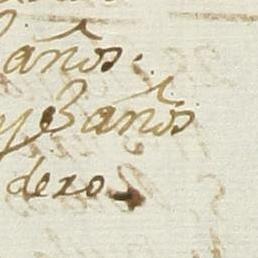 años.
y 3 años
dezo